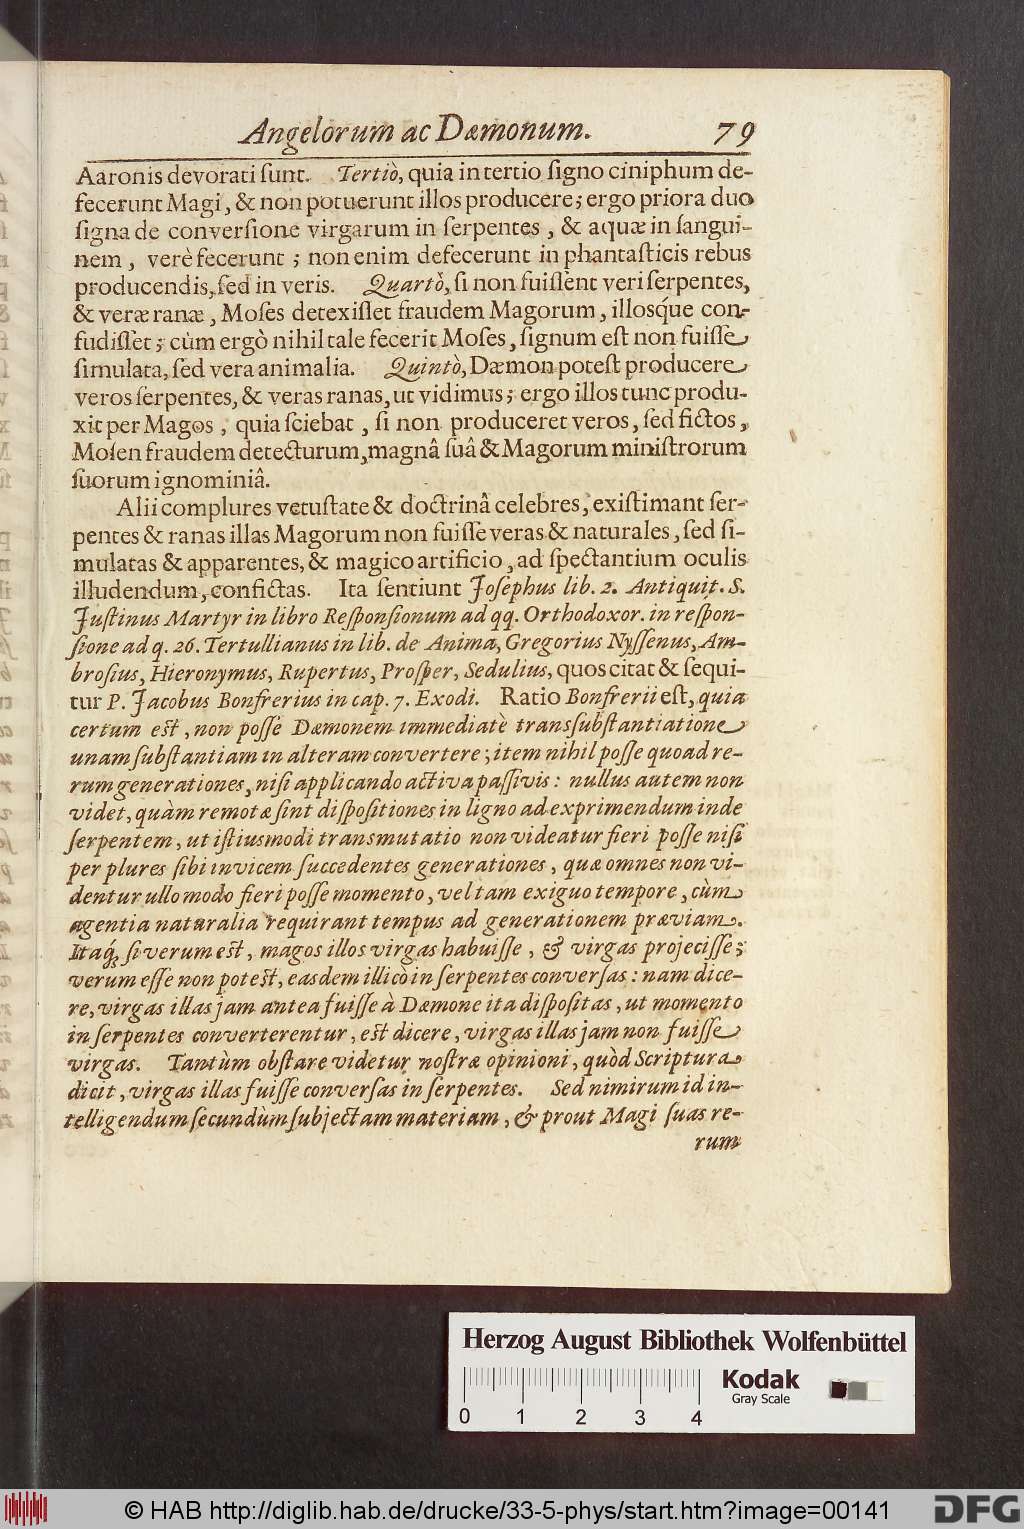 Angelorum ac Dæmonum. 79
Aaronis devorati ſunt. Tertiò, quia in tertio ſigno ciniphum de-
fecerunt Magi, & non potuerunt illos producere; ergo priora duo
ſigna de converſione virgarum in ſerpentes, & aquæ in ſangui-
nem, verè fecerunt; non enim defecerunt in phantaſticis rebus
producendis, ſed in veris. Quartò, ſi non fuiſſent veri ſerpentes,
& veræ ranæ, Moſes detexiſſet fraudem Magorum, illosq́ue con-
fudiſſet; cùm ergò nihil tale fecerit Moſes, ſignum eſt non fuiſſe
ſimulata, ſed vera animalia. Quintò, Dæmon poteſt producere
veros ſerpentes, & veras ranas, ut vidimus; ergo illos tunc produ-
xit per Magos, quia ſciebat, ſi non produceret veros, ſed fictos,
Moſen fraudem detecturum, magnâ ſuâ & Magorum miniſtrorum
ſuorum ignominiâ.
Alii complures vetuſtate & doctrinâ celebres, exiſtimant ſer-
pentes & ranas illas Magorum non fuiſſe veras & naturales, ſed ſi-
mulatas & apparentes, & magico artificio, ad ſpectantium oculis
illudendum, confictas. Ita ſentiunt Joſephus lib. 2. Antiquit. S.
Juſtinus Martyr in libro Reſponſionum ad qq. Orthodoxor. in reſpon-
ſione ad q. 26. Tertullianus in lib. de Anima, Gregorius Nyſſenus, Am-
broſius, Hieronymus, Rupertus, Proſper, Sedulius, quos citat & ſequi-
tur P. Jacobus Bonfrerius in cap. 7. Exodi. Ratio Bonfrerii eſt, quia
certum eſt, non poſſe Dæmonem immediatè transſubſtantiatione
unam ſubſtantiam in alteram convertere; item nihil poſſe quoad re-
rum generationes, niſi applicando activa paſſivis: nullus autem non
videt, quàm remotæ ſint diſpoſitiones in ligno ad exprimendum inde
ſerpentem, ut iſtiusmodi transmutatio non videatur fieri poſſe niſi
per plures ſibi invicem ſuccedentes generationes, quæ omnes non vi-
dentur ullo modo fieri poſſe momento, vel tam exiguo tempore, cùm
agentia naturalia requirant tempus ad generationem præviam.
Itaq́; ſi verum eſt, magos illos virgas habuiſſe, & virgas projeciſſe;
verum eſſe non poteſt, easdem illicò in ſerpentes converſas: nam dice-
re, virgas illas jam antea fuiſſe à Dæmone ita diſpoſitas, ut momento
in ſerpentes converterentur, eſt dicere, virgas illas jam non fuiſſe
virgas. Tantùm obſtare videtur noſtræ opinioni, quòd Scriptura
dicit, virgas illas fuiſſe converſas in ſerpentes. Sed nimirum id in-
telligendum ſecundùm ſubjectam materiam, & prout Magi ſuas re-
rum
Herzog August Bibliothek Wolfenbüttel
Kodak
Gray Scale
0 1 2 3 4
© HAB http://diglib.hab.de/drucke/33-5-phys/start.htm?image=00141
DFG